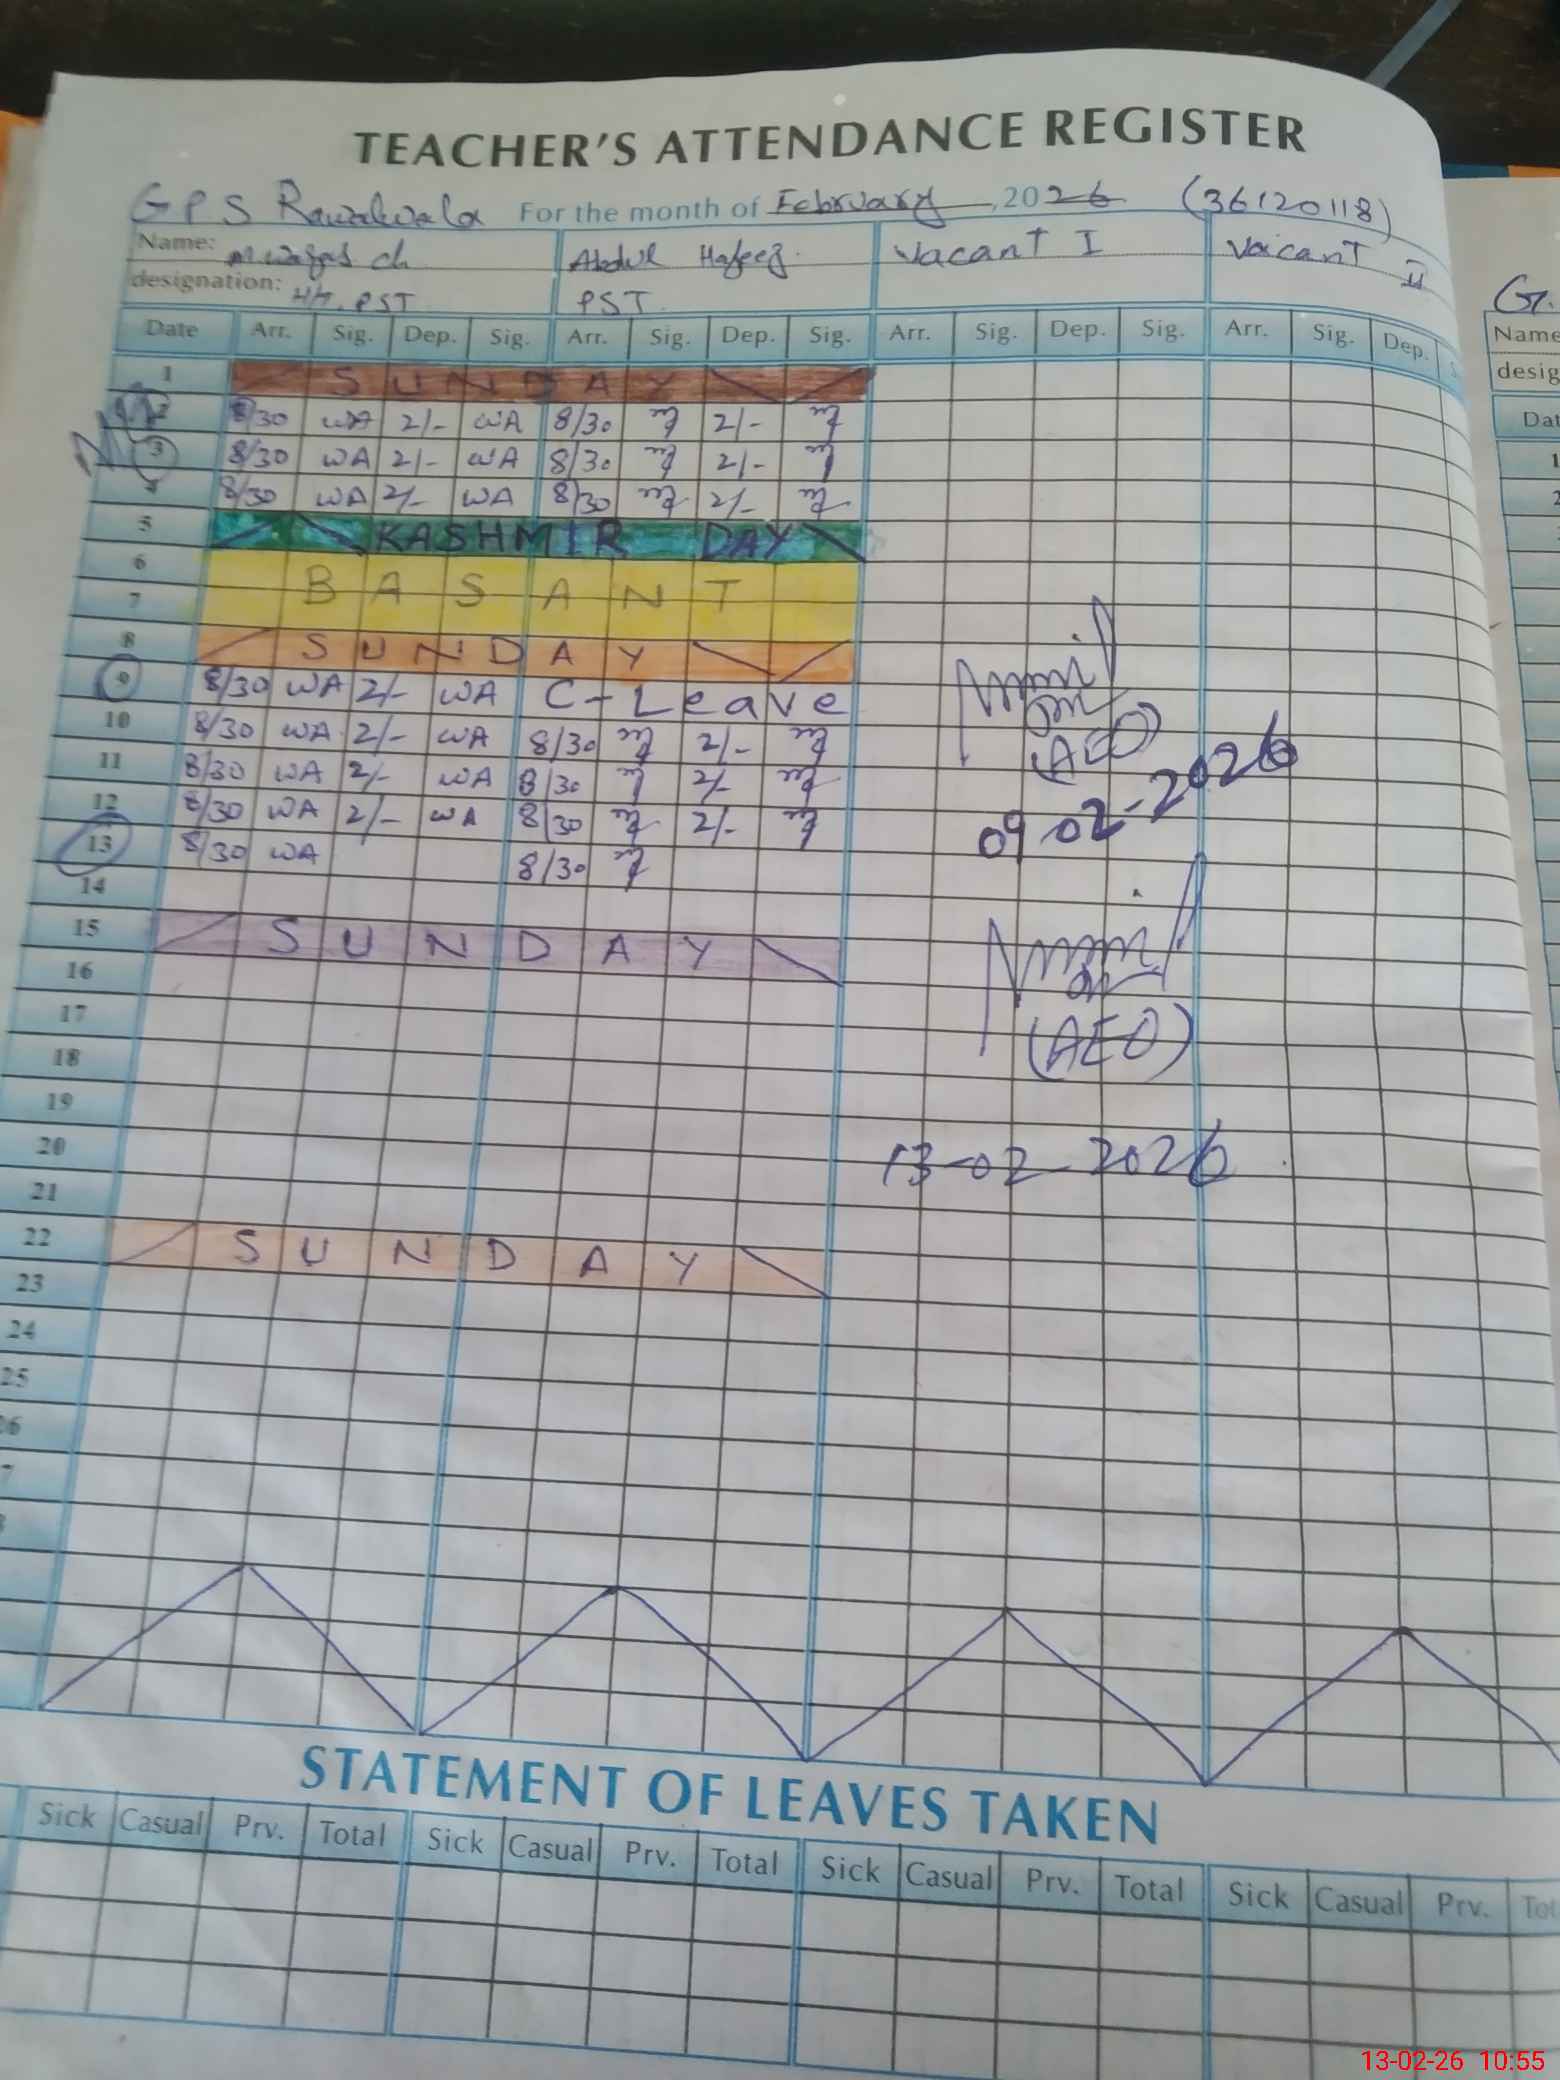 TEACHER'S ATTENDANCE REGISTER
GPS Rawalwala For the month of February, 2026 (36120118)
Name: M Waqas ch Abdul Hafeez. Vacant I Vacant II
designation: H/T. PST PST.
Date Arr. Sig. Dep. Sig. Arr. Sig. Dep. Sig. Arr. Sig. Dep. Sig. Arr. Sig. Dep.
1 SUNDAY
2 8/30 WA 2/- WA 8/30 2/-
3 8/30 WA 2/- WA 8/30 2/-
4 8/30 WA 2/- WA 8/30 2/-
5 KASHMIR DAY
6
BASANT
7
8 SUNDAY
9 8/30 WA 2/- WA C-Leave
10 8/30 WA 2/- WA 8/30 2/-
11 8/30 WA 2/- WA 8/30 2/-
12 8/30 WA 2/- WA 8/30 2/-
13 8/30 WA 8/30
(AEO)
09-02-2026
14
15 SUNDAY
16
17
18
(AEO)
19
20
13-02-2026
21
22 SUNDAY
23
24
25
26
7
STATEMENT OF LEAVES TAKEN
Sick Casual Prv. Total Sick Casual Prv. Total Sick Casual Prv. Total Sick Casual Prv. Tot
G.
Name
desig
Dat
1
2
13-02-26 10:55